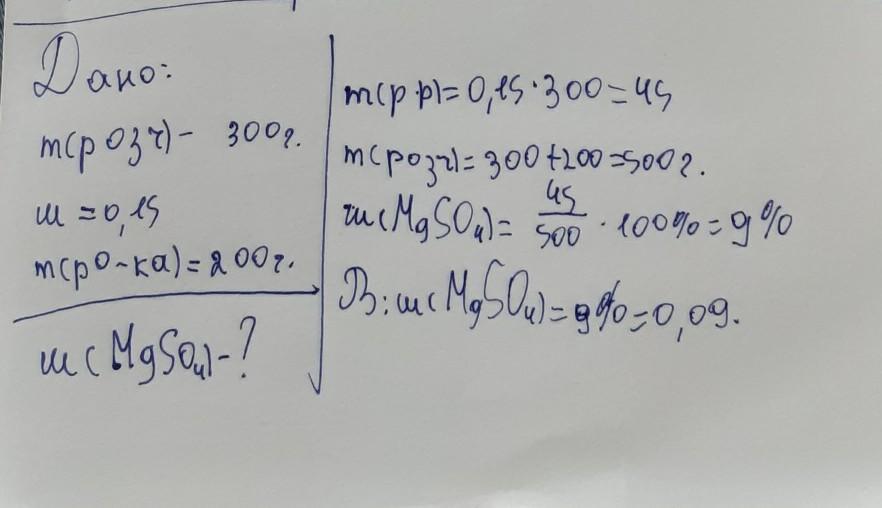 Дано:
m(розч)- 300г.
ш = 0,15
m(ро-ка)=200г.
ш(MgSO₄)-?
m(р.р)=0,15·300=45
m(розч)=300+200=500г.
ш(MgSO₄)= 45/500 · 100%=9%
В: ш(MgSO₄)=9%=0,09.